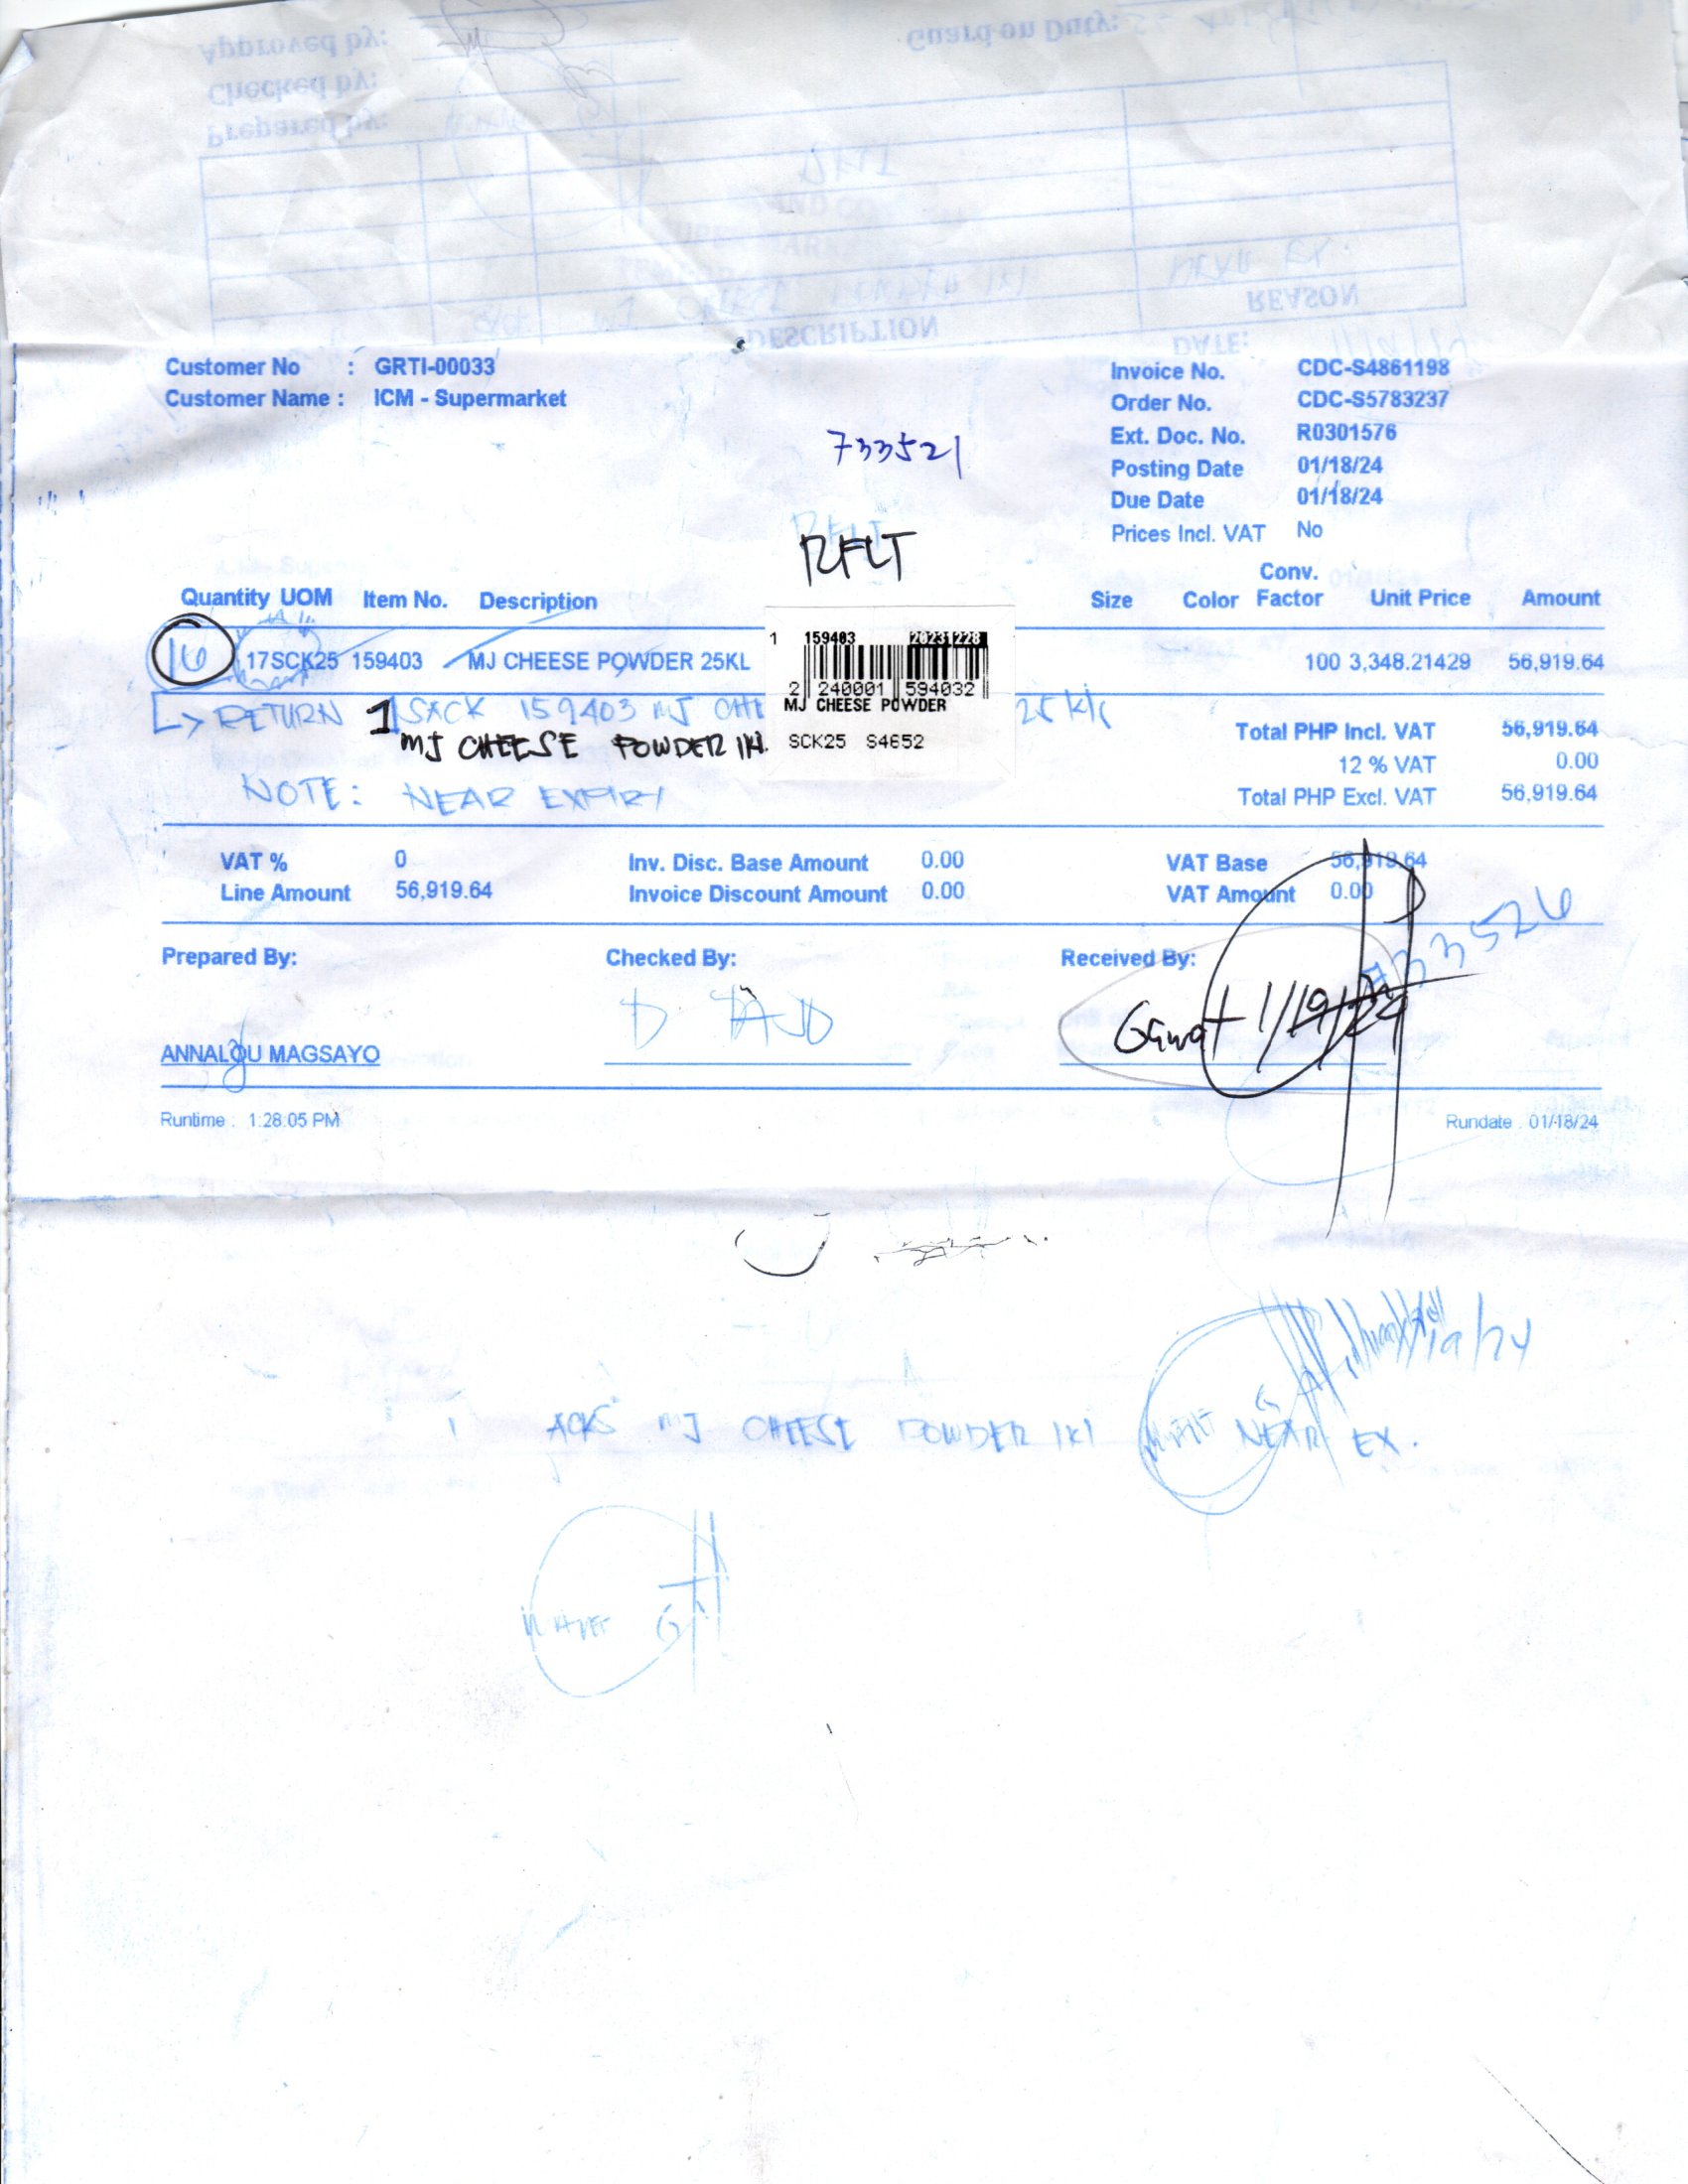 Approved by:
Checked by:
Prepared by:
Guard on Duty:
REASON
DESCRIPTION
DATE:
Customer No : GRTI-00033
Customer Name : ICM - Supermarket
Invoice No. CDC-S4861198
Order No. CDC-S5783237
Ext. Doc. No. R0301576
Posting Date 01/18/24
Due Date 01/18/24
Prices Incl. VAT No
733521
RFLT
Quantity UOM Item No. Description Size Color Conv. Factor Unit Price Amount
16
17SCK25 159403 MJ CHEESE POWDER 25KL 100 3,348.21429 56,919.64
1 159403 20231228
2 240001 594032
MJ CHEESE POWDER
SCK25 S4652
RETURN 1 SACK 159403 MJ CHE
MJ CHEESE POWDER 1K
NOTE: NEAR EXPIRI
Total PHP Incl. VAT 56,919.64
12 % VAT 0.00
Total PHP Excl. VAT 56,919.64
VAT % 0 Inv. Disc. Base Amount 0.00 VAT Base 56,919.64
Line Amount 56,919.64 Invoice Discount Amount 0.00 VAT Amount 0.00
733526
Prepared By: Checked By: Received By:
1/19/24
ANNALOU MAGSAYO
Runtime : 1:28:05 PM Rundate : 01/18/24
MJ CHEESE POWDER 1KI NEAR EX.